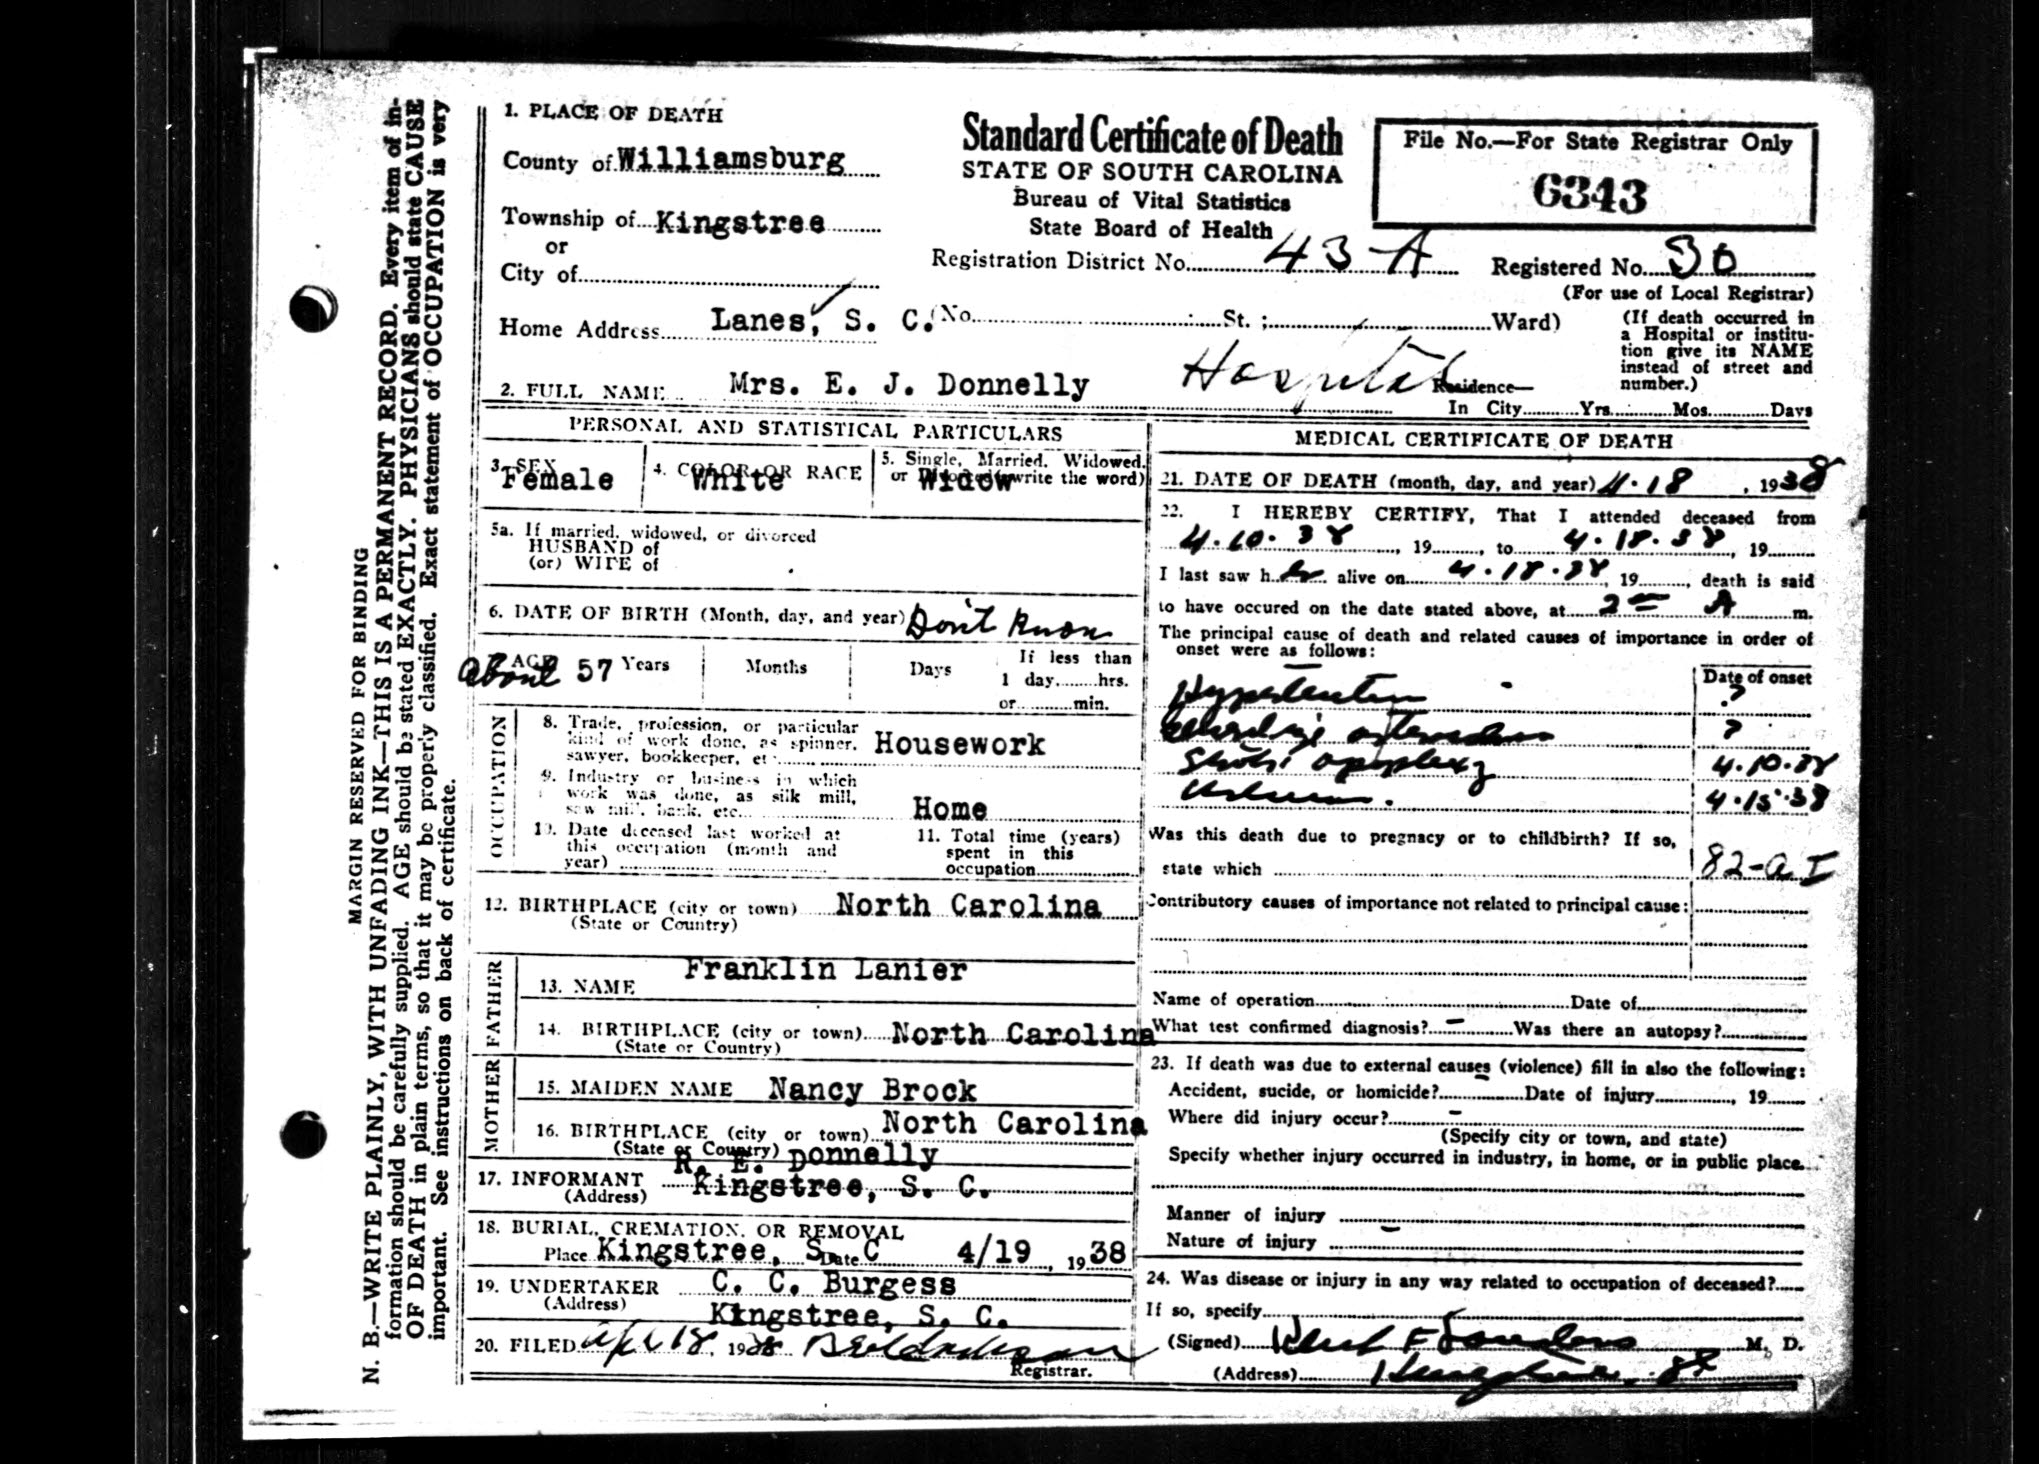 MARGIN RESERVED FOR BINDING
N. B.—WRITE PLAINLY, WITH UNFADING INK—THIS IS A PERMANENT RECORD. Every item of in-
formation should be carefully supplied. AGE should be stated EXACTLY. PHYSICIANS should state CAUSE
OF DEATH in plain terms, so that it may be properly classified. Exact statement of OCCUPATION is very
important. See instructions on back of certificate.
1. PLACE OF DEATH
County of Williamsburg
Township of Kingstree
or
City of
Home Address Lanes, S. C. (No. St. ; Ward)
Standard Certificate of Death
STATE OF SOUTH CAROLINA
Bureau of Vital Statistics
State Board of Health
Registration District No. 43-A
File No.—For State Registrar Only
6343
Registered No. 30
(For use of Local Registrar)
(If death occurred in
a Hospital or institu-
tion give its NAME
instead of street and
number.)
2. FULL NAME Mrs. E. J. Donnelly
Hospital
Residence—
In City Yrs. Mos. Days
PERSONAL AND STATISTICAL PARTICULARS
3. SEX
Female
4. COLOR OR RACE
White
5. Single, Married, Widowed,
or (write the word)
Widow
5a. If married, widowed, or divorced
HUSBAND of
(or) WIFE of
6. DATE OF BIRTH (Month, day, and year) Don't know
AGE
about 57 Years Months Days
If less than
1 day hrs.
or min.
OCCUPATION
8. Trade, profession, or particular
kind of work done, as spinner,
sawyer, bookkeeper, etc. Housework
9. Industry or business in which
work was done, as silk mill,
saw mill, bank, etc. Home
10. Date deceased last worked at
this occupation (month and
year)
11. Total time (years)
spent in this
occupation
12. BIRTHPLACE (city or town) North Carolina
(State or Country)
FATHER
13. NAME Franklin Lanier
14. BIRTHPLACE (city or town) North Carolina
(State or Country)
MOTHER
15. MAIDEN NAME Nancy Brock
16. BIRTHPLACE (city or town) North Carolina
(State or Country)
17. INFORMANT R. E. Donnelly
(Address) Kingstree, S. C.
18. BURIAL, CREMATION, OR REMOVAL
Place Kingstree, S. C Date 4/19, 1938
19. UNDERTAKER C. C. Burgess
(Address) Kingstree, S. C.
20. FILED Apr 18, 1938
Registrar.
MEDICAL CERTIFICATE OF DEATH
21. DATE OF DEATH (month, day, and year) 4.18, 1938
22. I HEREBY CERTIFY, That I attended deceased from
4.10.38, 19, to 4.18.38, 19
I last saw her alive on 4.18.38, 19, death is said
to have occured on the date stated above, at 2 A m.
The principal cause of death and related causes of importance in order of
onset were as follows:
Date of onset
Hypertention ?
?
apoplexy 4.10.38
4.15.38
Was this death due to pregnacy or to childbirth? If so,
state which
82-a I
Contributory causes of importance not related to principal cause:
Name of operation Date of
What test confirmed diagnosis? – Was there an autopsy?
23. If death was due to external causes (violence) fill in also the following:
Accident, sucide, or homicide? Date of injury, 19
Where did injury occur? –
(Specify city or town, and state)
Specify whether injury occurred in industry, in home, or in public place.
Manner of injury
Nature of injury –
24. Was disease or injury in any way related to occupation of deceased?
If so, specify
(Signed) M. D.
(Address) Kingstree, SC